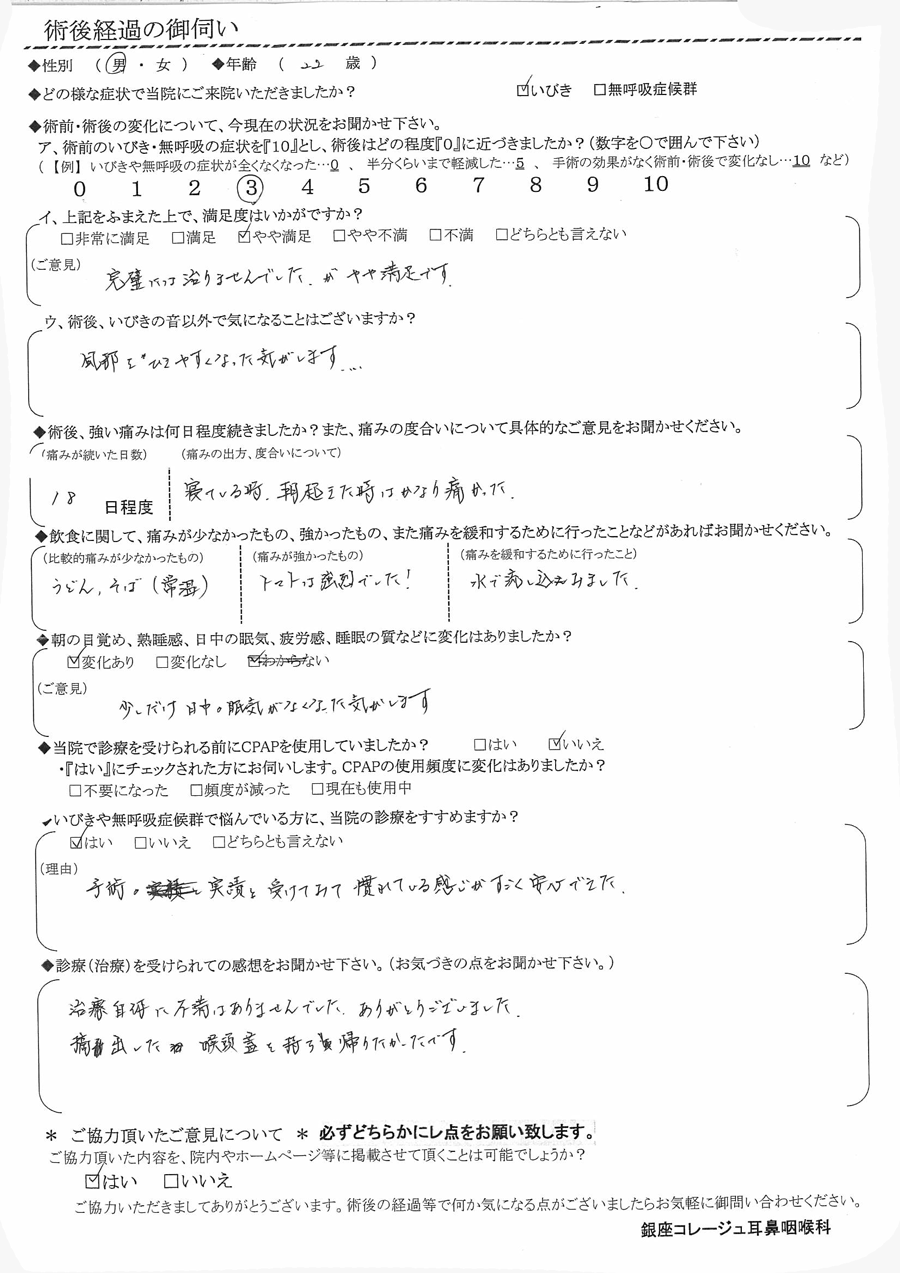 術後経過の御伺い
◆性別 ( 男 ・ 女 ) ◆年齢 ( 22 歳 )
◆どの様な症状で当院にご来院いただきましたか? ☑いびき □無呼吸症候群
◆術前・術後の変化について、今現在の状況をお聞かせ下さい。
ア、術前のいびき・無呼吸の症状を『10』とし、術後はどの程度『0』に近づきましたか?(数字を〇で囲んで下さい)
(【例】 いびきや無呼吸の症状が全くなくなった…0 、 半分くらいまで軽減した…5 、 手術の効果がなく術前・術後で変化なし…10 など)
0 1 2 3 4 5 6 7 8 9 10
イ、上記をふまえた上で、満足度はいかがですか?
□非常に満足 □満足 ☑やや満足 □やや不満 □不満 □どちらとも言えない
(ご意見)
完璧には治りませんでした、が やや満足です.
ウ、術後、いびきの音以外で気になることはございますか?
風邪をひきやすくなった気がします....
◆術後、強い痛みは何日程度続きましたか?また、痛みの度合いについて具体的なご意見をお聞かせください。
(痛みが続いた日数) (痛みの出方、度合いについて)
18 日程度 寝ている時、朝起きた時はかなり痛かった.
◆飲食に関して、痛みが少なかったもの、強かったもの、また痛みを緩和するために行ったことなどがあればお聞かせください。
(比較的痛みが少なかったもの) (痛みが強かったもの) (痛みを緩和するために行ったこと)
うどん, そば (常温) トマトは強烈でした! 水で流し込みました.
◆朝の目覚め、熟睡感、日中の眠気、疲労感、睡眠の質などに変化はありましたか?
☑変化あり □変化なし ☑わからない
(ご意見)
少しだけ 日中の眠気がなくなった気がします
◆当院で診療を受けられる前にCPAPを使用していましたか? □はい ☑いいえ
・『はい』にチェックされた方にお伺いします。CPAPの使用頻度に変化はありましたか?
□不要になった □頻度が減った □現在も使用中
いびきや無呼吸症候群で悩んでいる方に、当院の診療をすすめますか?
☑はい □いいえ □どちらとも言えない
(理由)
手術の 実績を 受けてみて 慣れている感じがすごく安心できた.
◆診療(治療)を受けられての感想をお聞かせ下さい。(お気づきの点をお聞かせ下さい。)
治療自体に不満はありませんでした. ありがとうございました.
摘出した 喉頭蓋を持ち帰りたかったです.
＊ ご協力頂いたご意見について ＊ 必ずどちらかにレ点をお願い致します。
ご協力頂いた内容を、院内やホームページ等に掲載させて頂くことは可能でしょうか?
☑はい □いいえ
ご協力いただきましてありがとうございます。術後の経過等で何か気になる点がございましたらお気軽に御問い合わせください。
銀座コレージュ耳鼻咽喉科